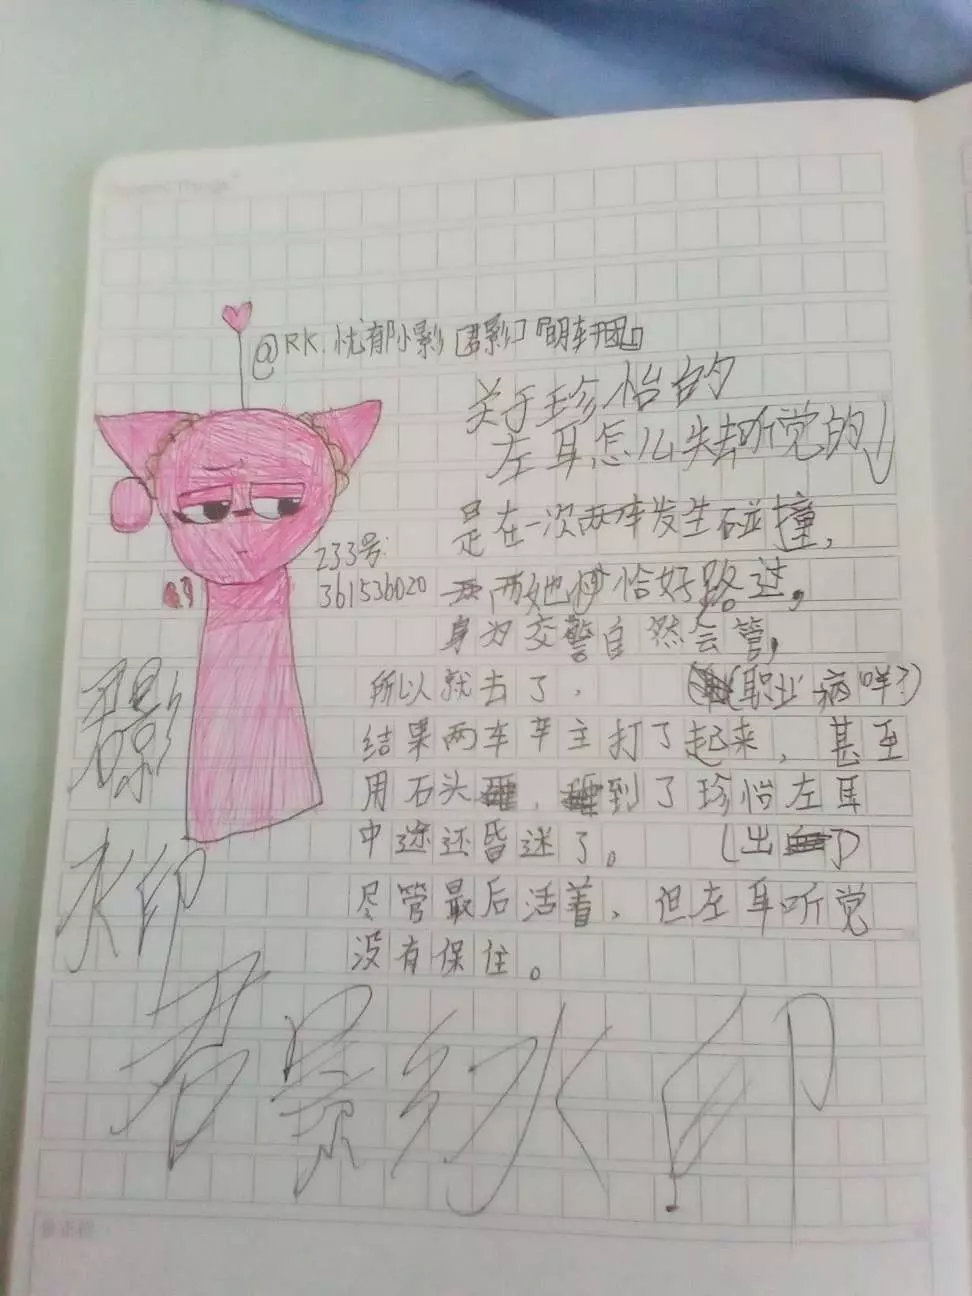 @RK.忧郁小影『君影』『萌车团』
关于珍怡的
左耳怎么失去听觉的
是在一次两车发生碰撞，
233号:
361536020
两她恰好路过，
身为交警自然会管，
所以就去了， (职业病咩?)
结果两车车主打了起来，甚至
用石头砸，砸到了珍怡左耳
中途还昏迷了。 (出血了)
尽管最后活着，但左耳听觉
没有保住。
君影
水印
君影水印